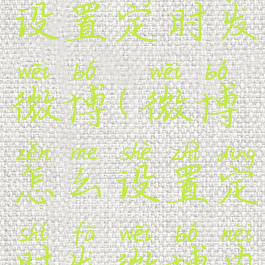 设置定时发
wēi bó wēi bó
微博(微博
zěn me shè zhì dìng
怎么设置定
shí fā wēi bó nèi
时发微博内